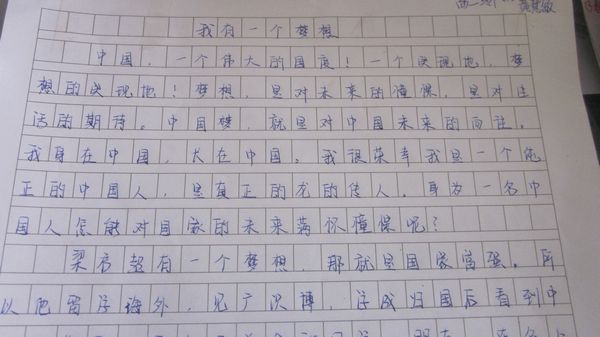 我有一个梦想
中国，一个伟大的国度！一个实现地，梦
想的实现地！梦想，是对未来的憧憬，是对生
活的期待。中国梦，就是对中国未来的向往。
我身在中国，长在中国。我很荣幸我是一个纯
正的中国人，是真正的龙的传人。身为一名中
国人怎能对国家的未来满怀憧憬呢？
梁启超有一个梦想，那就是国家富强。所
以他留学海外，见广识博，学成归国后看到中